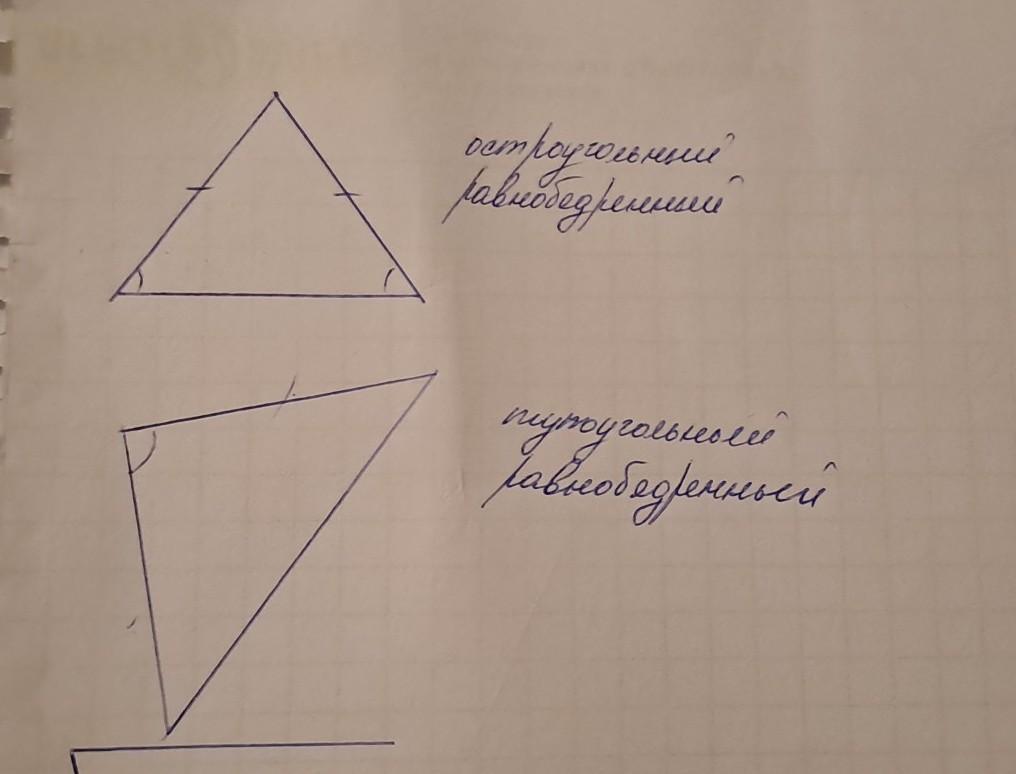 остроугольный
равнобедренный
тупоугольный
равнобедренный